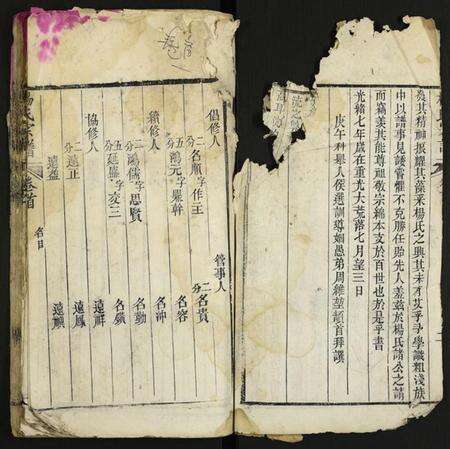 為其精神振耀其藻采楊氏之興其未有艾乎予學識粗淺族
中以譜事見諉嘗懼不克勝任貽先人羞茲於楊氏諸公之請
而竊美其能尊祖敬宗綿本支於百世也於是乎書
光緒七年歲在重光大荒落七月望三日
庚午科舉人候選訓導姻愚弟周維堃頓首拜譔
卷首
倡修人
二分名顺字作王
五分鴻元字果幹
續修人
二分鴻儒字思賢
五分延盛字变三
協修人
二分遠正
遠盛
管事人
二分名貴
名容
名沖
名勤
名殯
遠輝
遠鳳
遠順
楊氏宗譜
卷首
名目